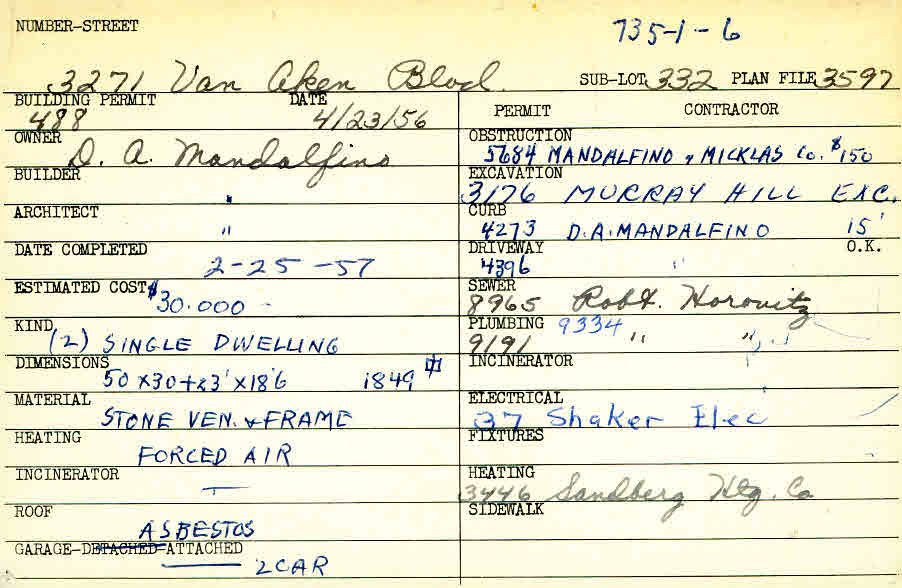 NUMBER-STREET 735-1-6
3271 Van Aken Blvd. SUB-LOT 332 PLAN FILE 3597
BUILDING PERMIT DATE
488 4/23/56
OWNER D. A. Mandalfino
BUILDER "
ARCHITECT "
DATE COMPLETED
2-25-57
ESTIMATED COST $30.000 -
KIND (2) SINGLE DWELLING
DIMENSIONS
50 x 30 + 23' x 18'6 1849
MATERIAL
STONE VEN. & FRAME
HEATING
FORCED AIR
INCINERATOR
—
ROOF
ASBESTOS
GARAGE-DETACHED-ATTACHED
2 CAR
PERMIT CONTRACTOR
OBSTRUCTION
5684 MANDALFINO & MICKLAS Co. $150
EXCAVATION
3176 MURRAY HILL EXC.
CURB
4273 D.A. MANDALFINO 15'
DRIVEWAY O.K.
4396 "
SEWER
8965 Robt. Horovitz
PLUMBING 9334
9191 " "
INCINERATOR
ELECTRICAL
37 Shaker Elec
FIXTURES
HEATING
3446 Sandberg Htg. Co
SIDEWALK